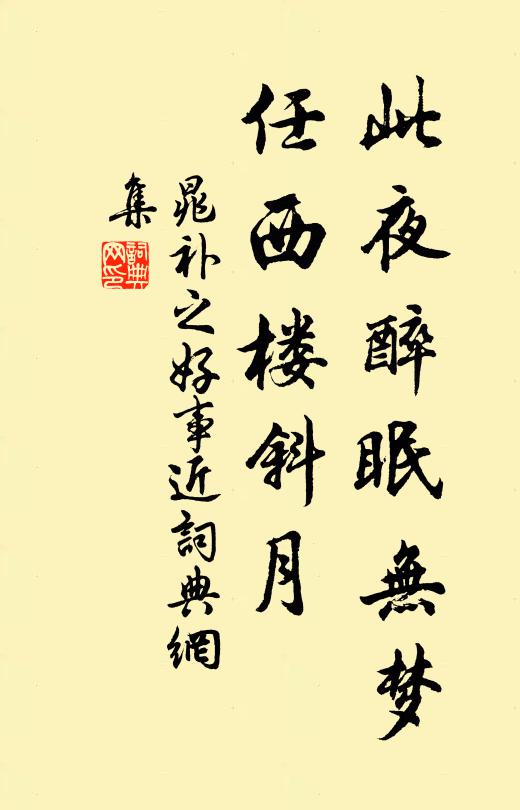 此夜醉眠無梦
任西楼斜月
晁补之好事近詞典網
集
詞典
网印